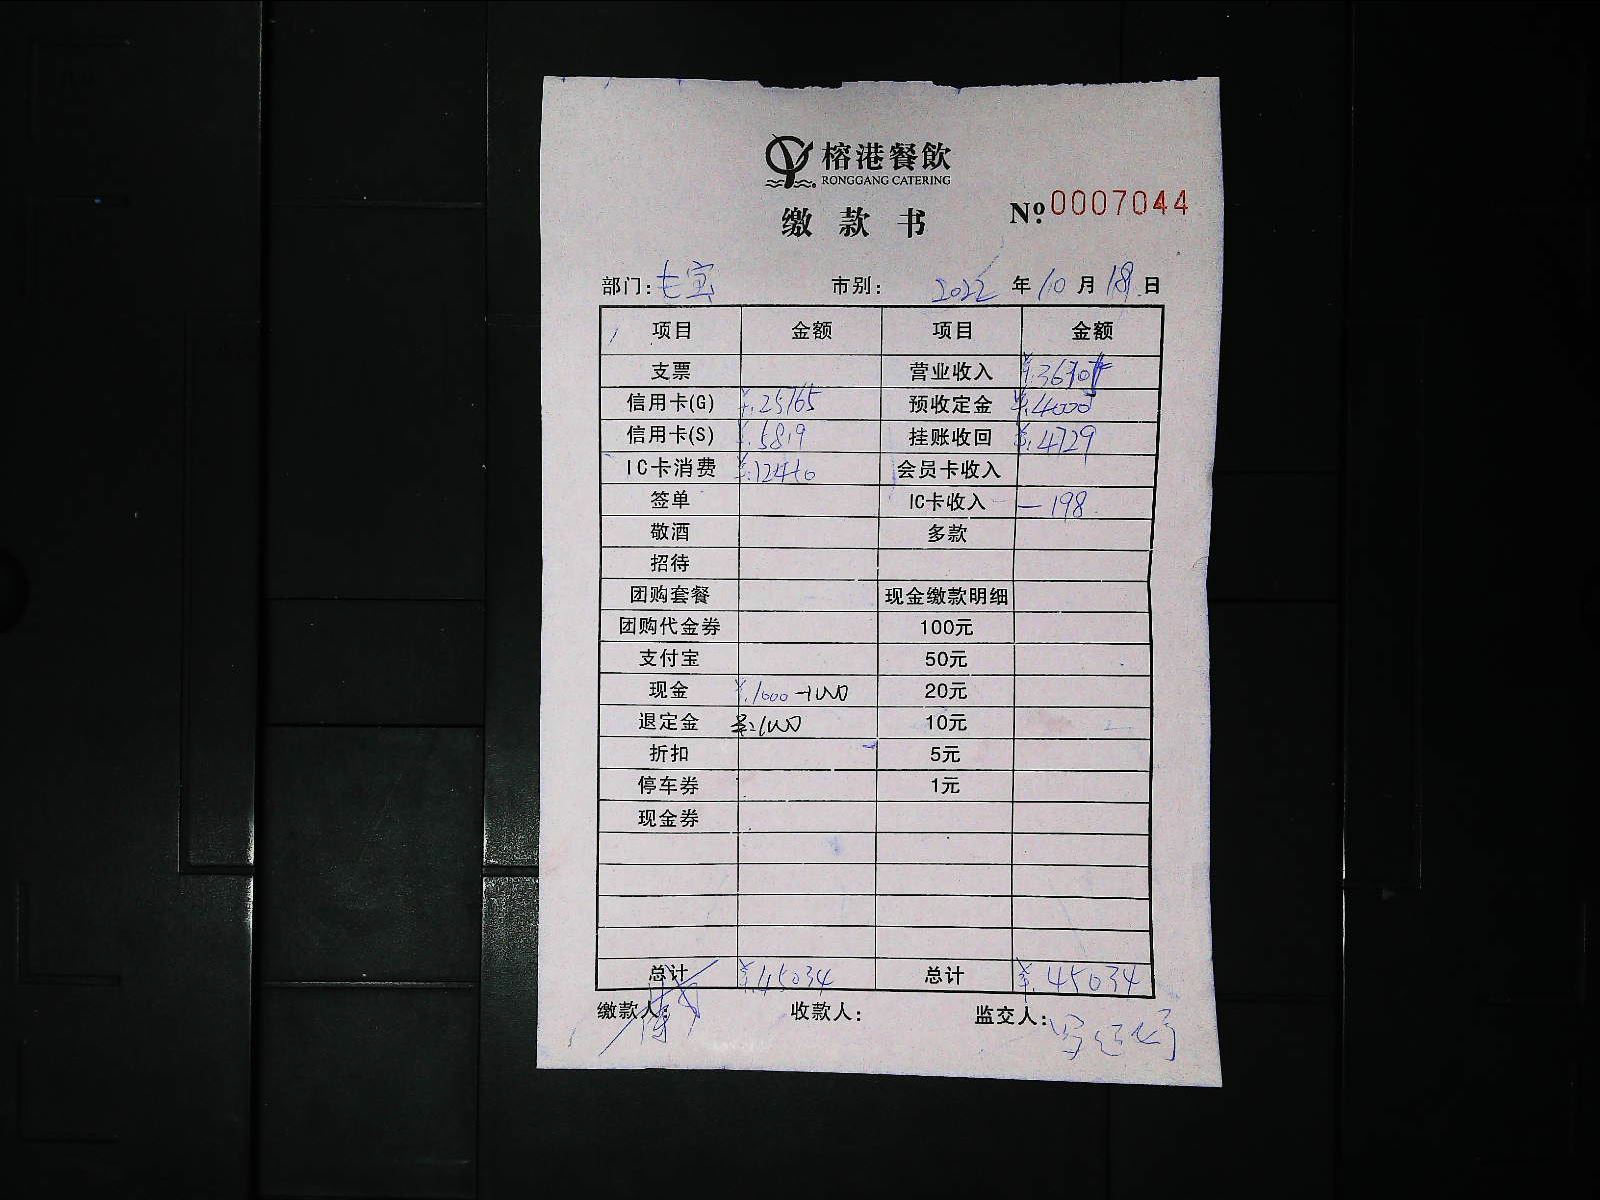 榕港餐飲
RONGGANG CATERING
缴款书 № 0007044
部门: 七宝 市别: 2022 年 10 月 18 日
项目 金额 项目 金额
支票 营业收入
信用卡(G) ¥.25765 预收定金 ¥.4000
信用卡(S) ¥.5819 挂账收回 ¥.4729
IC卡消费 ¥.12450 会员卡收入
签单 IC卡收入 —198
敬酒 多款
招待
团购套餐 现金缴款明细
团购代金券 100元
支付宝 50元
现金 ¥.1000 20元
退定金 10元
折扣 5元
停车券 1元
现金券
总计 ¥.45034 总计 ¥.45034
缴款人: 收款人: 监交人: